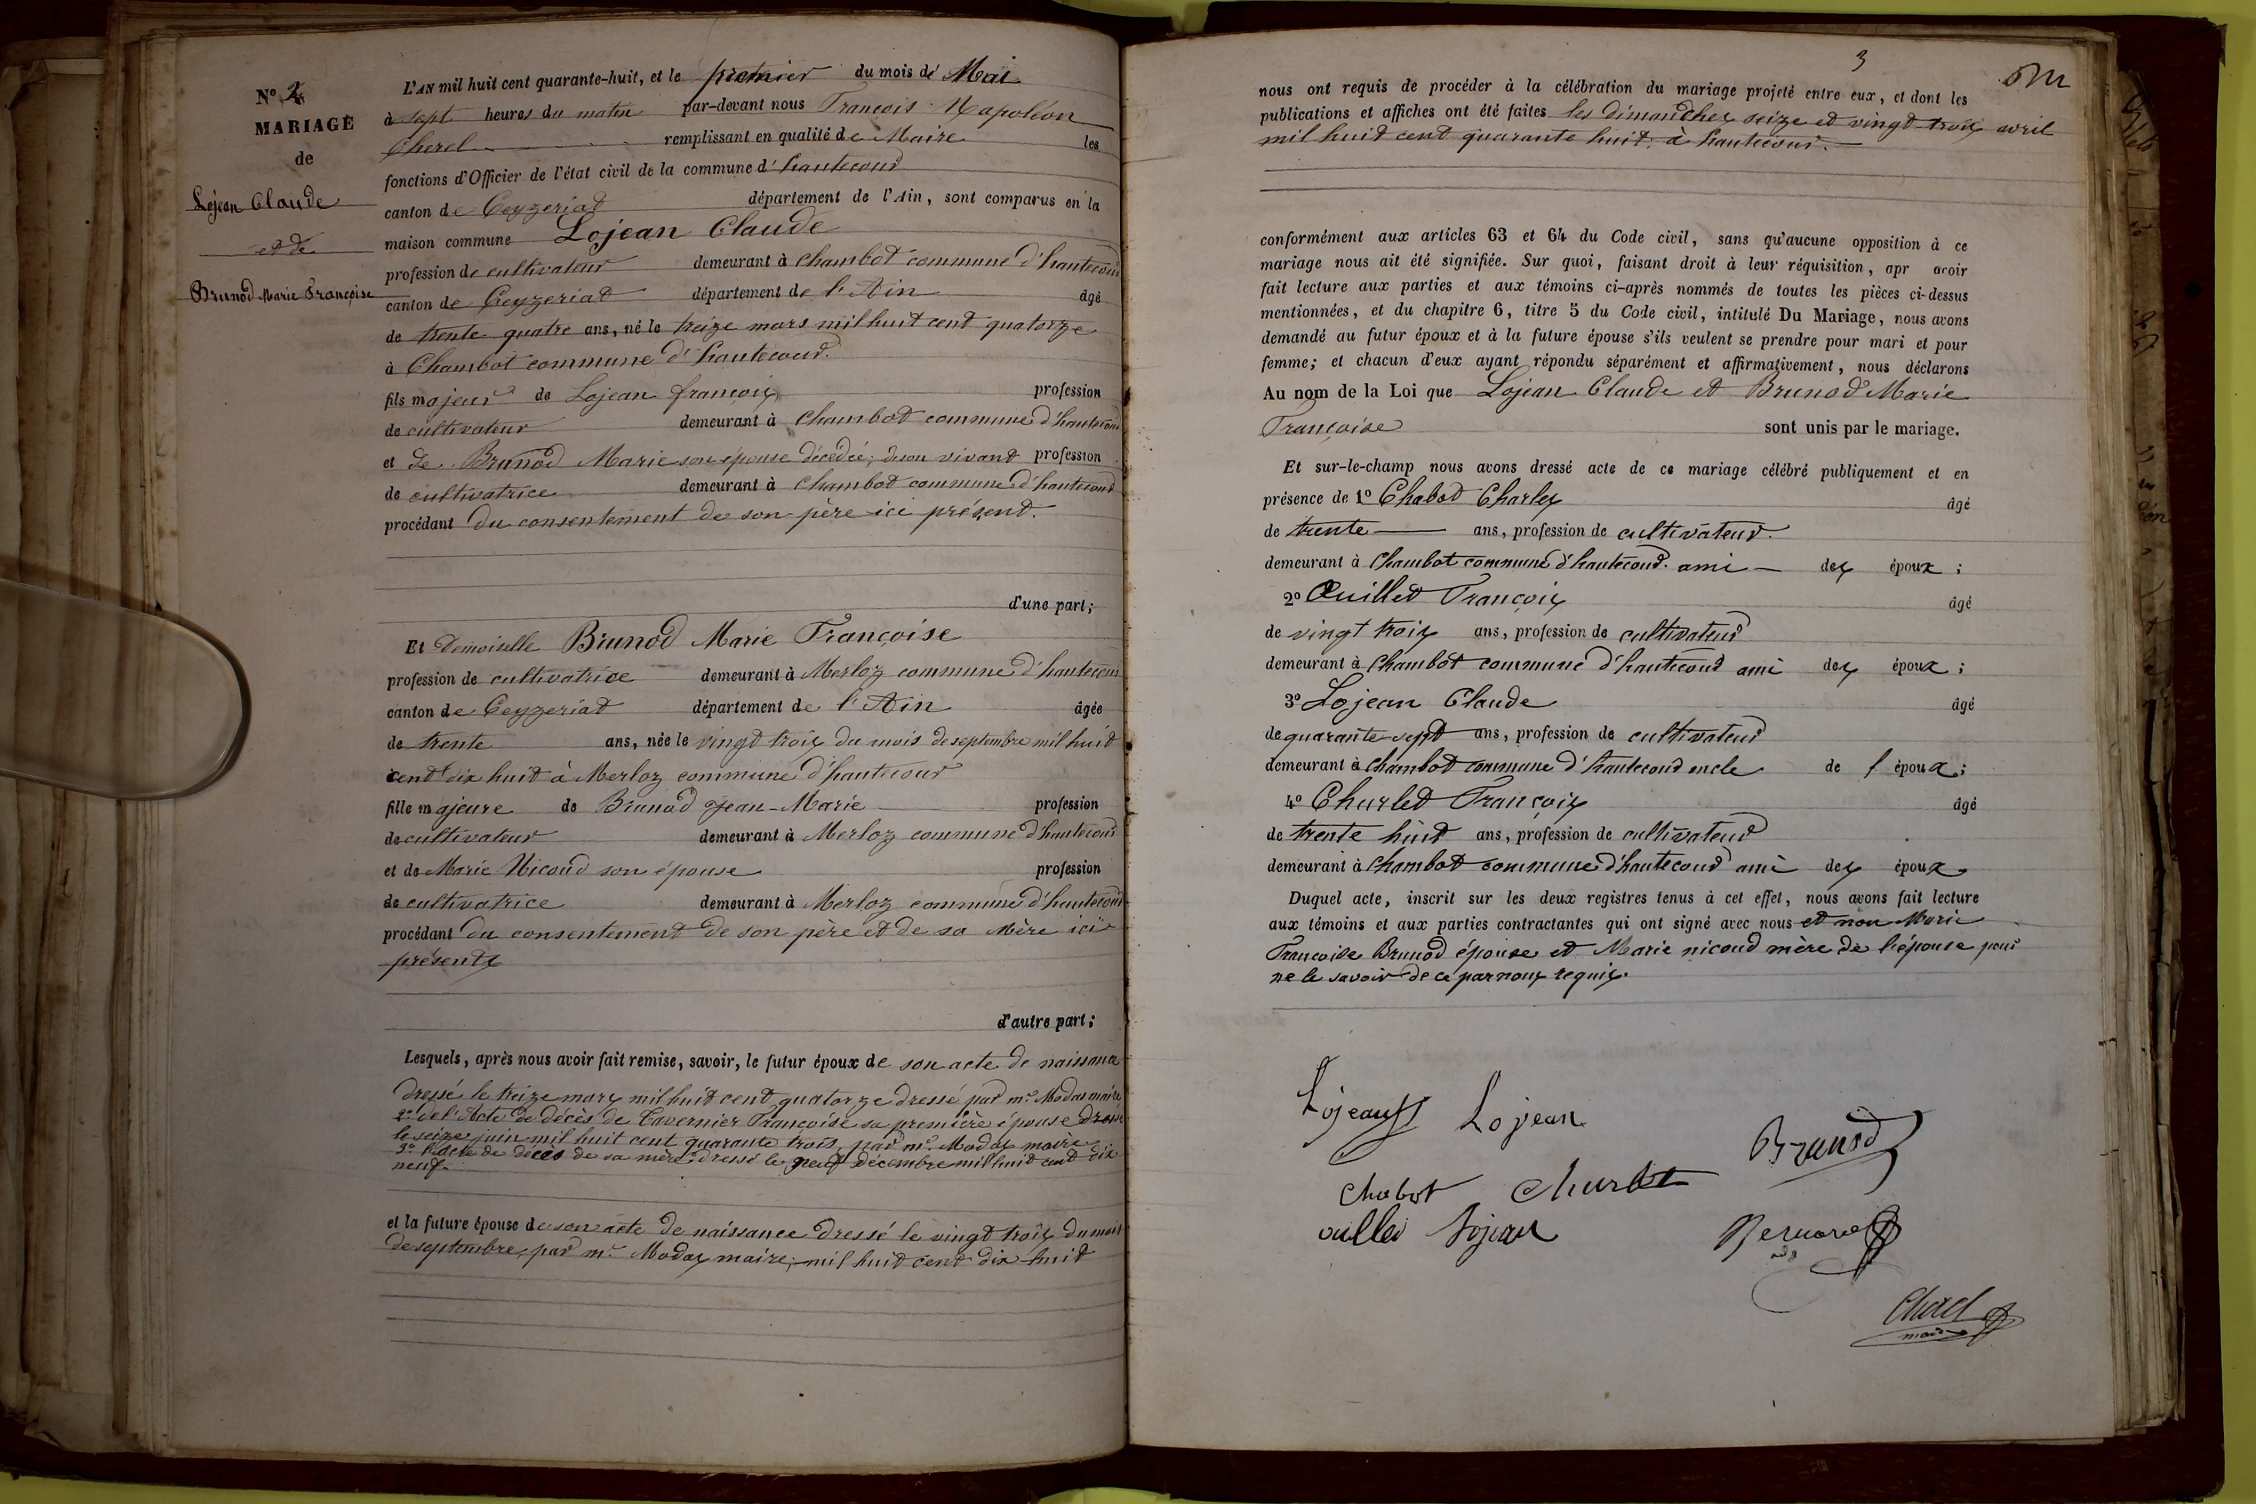 N° 2
MARIAGE
de
Lojean Claude
et de
Brunod Marie Françoise
L'AN mil huit cent quarante-huit, et le premier du mois de Mai
à sept heures du matin par-devant nous François Napoléon
Cherel remplissant en qualité de Maire les
fonctions d'Officier de l'état civil de la commune d'hautecour
canton de Ceyzeriat département de l'Ain, sont comparus en la
maison commune Lojean Claude
profession de cultivateur demeurant à Chambot commune d'hautecour
canton de Ceyzeriat département de l'Ain âgé
de trente quatre ans, né le treize mars mil huit cent quatorze
à Chambot commune d'hautecour.
fils majeur de Lojean françois profession
de cultivateur demeurant à Chambot commune d'hautecour
et de Brunod Marie son épouse décédée; de son vivant profession
de cultivatrice demeurant à Chambot commune d'hautecour
procédant du consentement de son père ici présent.
d'une part;
Et Demoiselle Brunod Marie Françoise
profession de cultivatrice demeurant à Merloz commune d'hautecour
canton de Ceyzeriat département de l'Ain âgée
de trente ans, née le vingt trois du mois de septembre mil huit
cent dix huit à Merloz commune d'hautecour
fille majeure de Brunod Jean-Marie profession
de cultivateur demeurant à Merloz commune d'hautecour
et de Marie Nicoud son épouse profession
de cultivatrice demeurant à Merloz commune d'hautecour
procédant du consentement de son père et de sa Mère ici
présents
d'autre part;
Lesquels, après nous avoir fait remise, savoir, le futur époux de son acte de naissance
dressé le treize mars mil huit cent quatorze dressé par mr. Modas maire,
2° de l'Acte de décès de Tavernier Françoise sa première épouse dressé
le seize juin mil huit cent quarante trois, par mr. Modas maire
3° l'acte de décès de sa mère dressé le neuf décembre mil huit cent dix
neuf.
et la future épouse de son acte de naissance dressé le vingt trois du mois
de septembre, par mr. Modas maire, mil huit cent dix huit
3
nous ont requis de procéder à la célébration du mariage projeté entre eux, et dont les
publications et affiches ont été faites les dimanches seize et vingt trois avril
mil huit cent quarante huit, à hautecour.
conformément aux articles 63 et 64 du Code civil, sans qu'aucune opposition à ce
mariage nous ait été signifiée. Sur quoi, faisant droit à leur réquisition, apr avoir
fait lecture aux parties et aux témoins ci-après nommés de toutes les pièces ci-dessus
mentionnées, et du chapitre 6, titre 5 du Code civil, intitulé Du Mariage, nous avons
demandé au futur époux et à la future épouse s'ils veulent se prendre pour mari et pour
femme; et chacun d'eux ayant répondu séparément et affirmativement, nous déclarons
Au nom de la Loi que Lojean Claude et Brunod Marie
Françoise sont unis par le mariage.
Et sur-le-champ nous avons dressé acte de ce mariage célébré publiquement et en
présence de 1° Chabot Charles âgé
de trente ans, profession de cultivateur.
demeurant à Chambot commune d'hautecour. ami des époux;
2° Œuillet François âgé
de vingt trois ans, profession de cultivateur
demeurant à Chambot commune d'hautecour ami des époux;
3° Lojean Claude âgé
de quarante-sept ans, profession de cultivateur
demeurant à Chambot commune d'hautecour oncle de l'époux;
4° Churlet François âgé
de trente huit ans, profession de cultivateur
demeurant à Chambot commune d'hautecour ami des époux
Duquel acte, inscrit sur les deux registres tenus à cet effet, nous avons fait lecture
aux témoins et aux parties contractantes qui ont signé avec nous et non Marie
Francoise Brunod épouse et Marie nicoud mère de l'épouse pour
ne le savoir de ce par nous requis.
Lojean Lojean Brunod
Chabot Churlet
ouillet Lojean
Cherel
maire